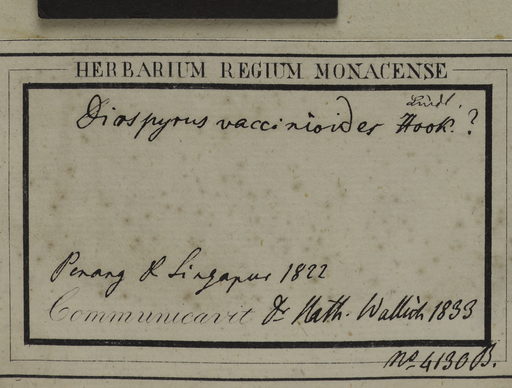 HERBARIUM REGIUM MONACENSE
Lindl.
Diospyrus vaccinioides Hook. ?
Penang & Singapur 1822
Communicavit Dr Nath. Wallich 1833
No. 4130 B.